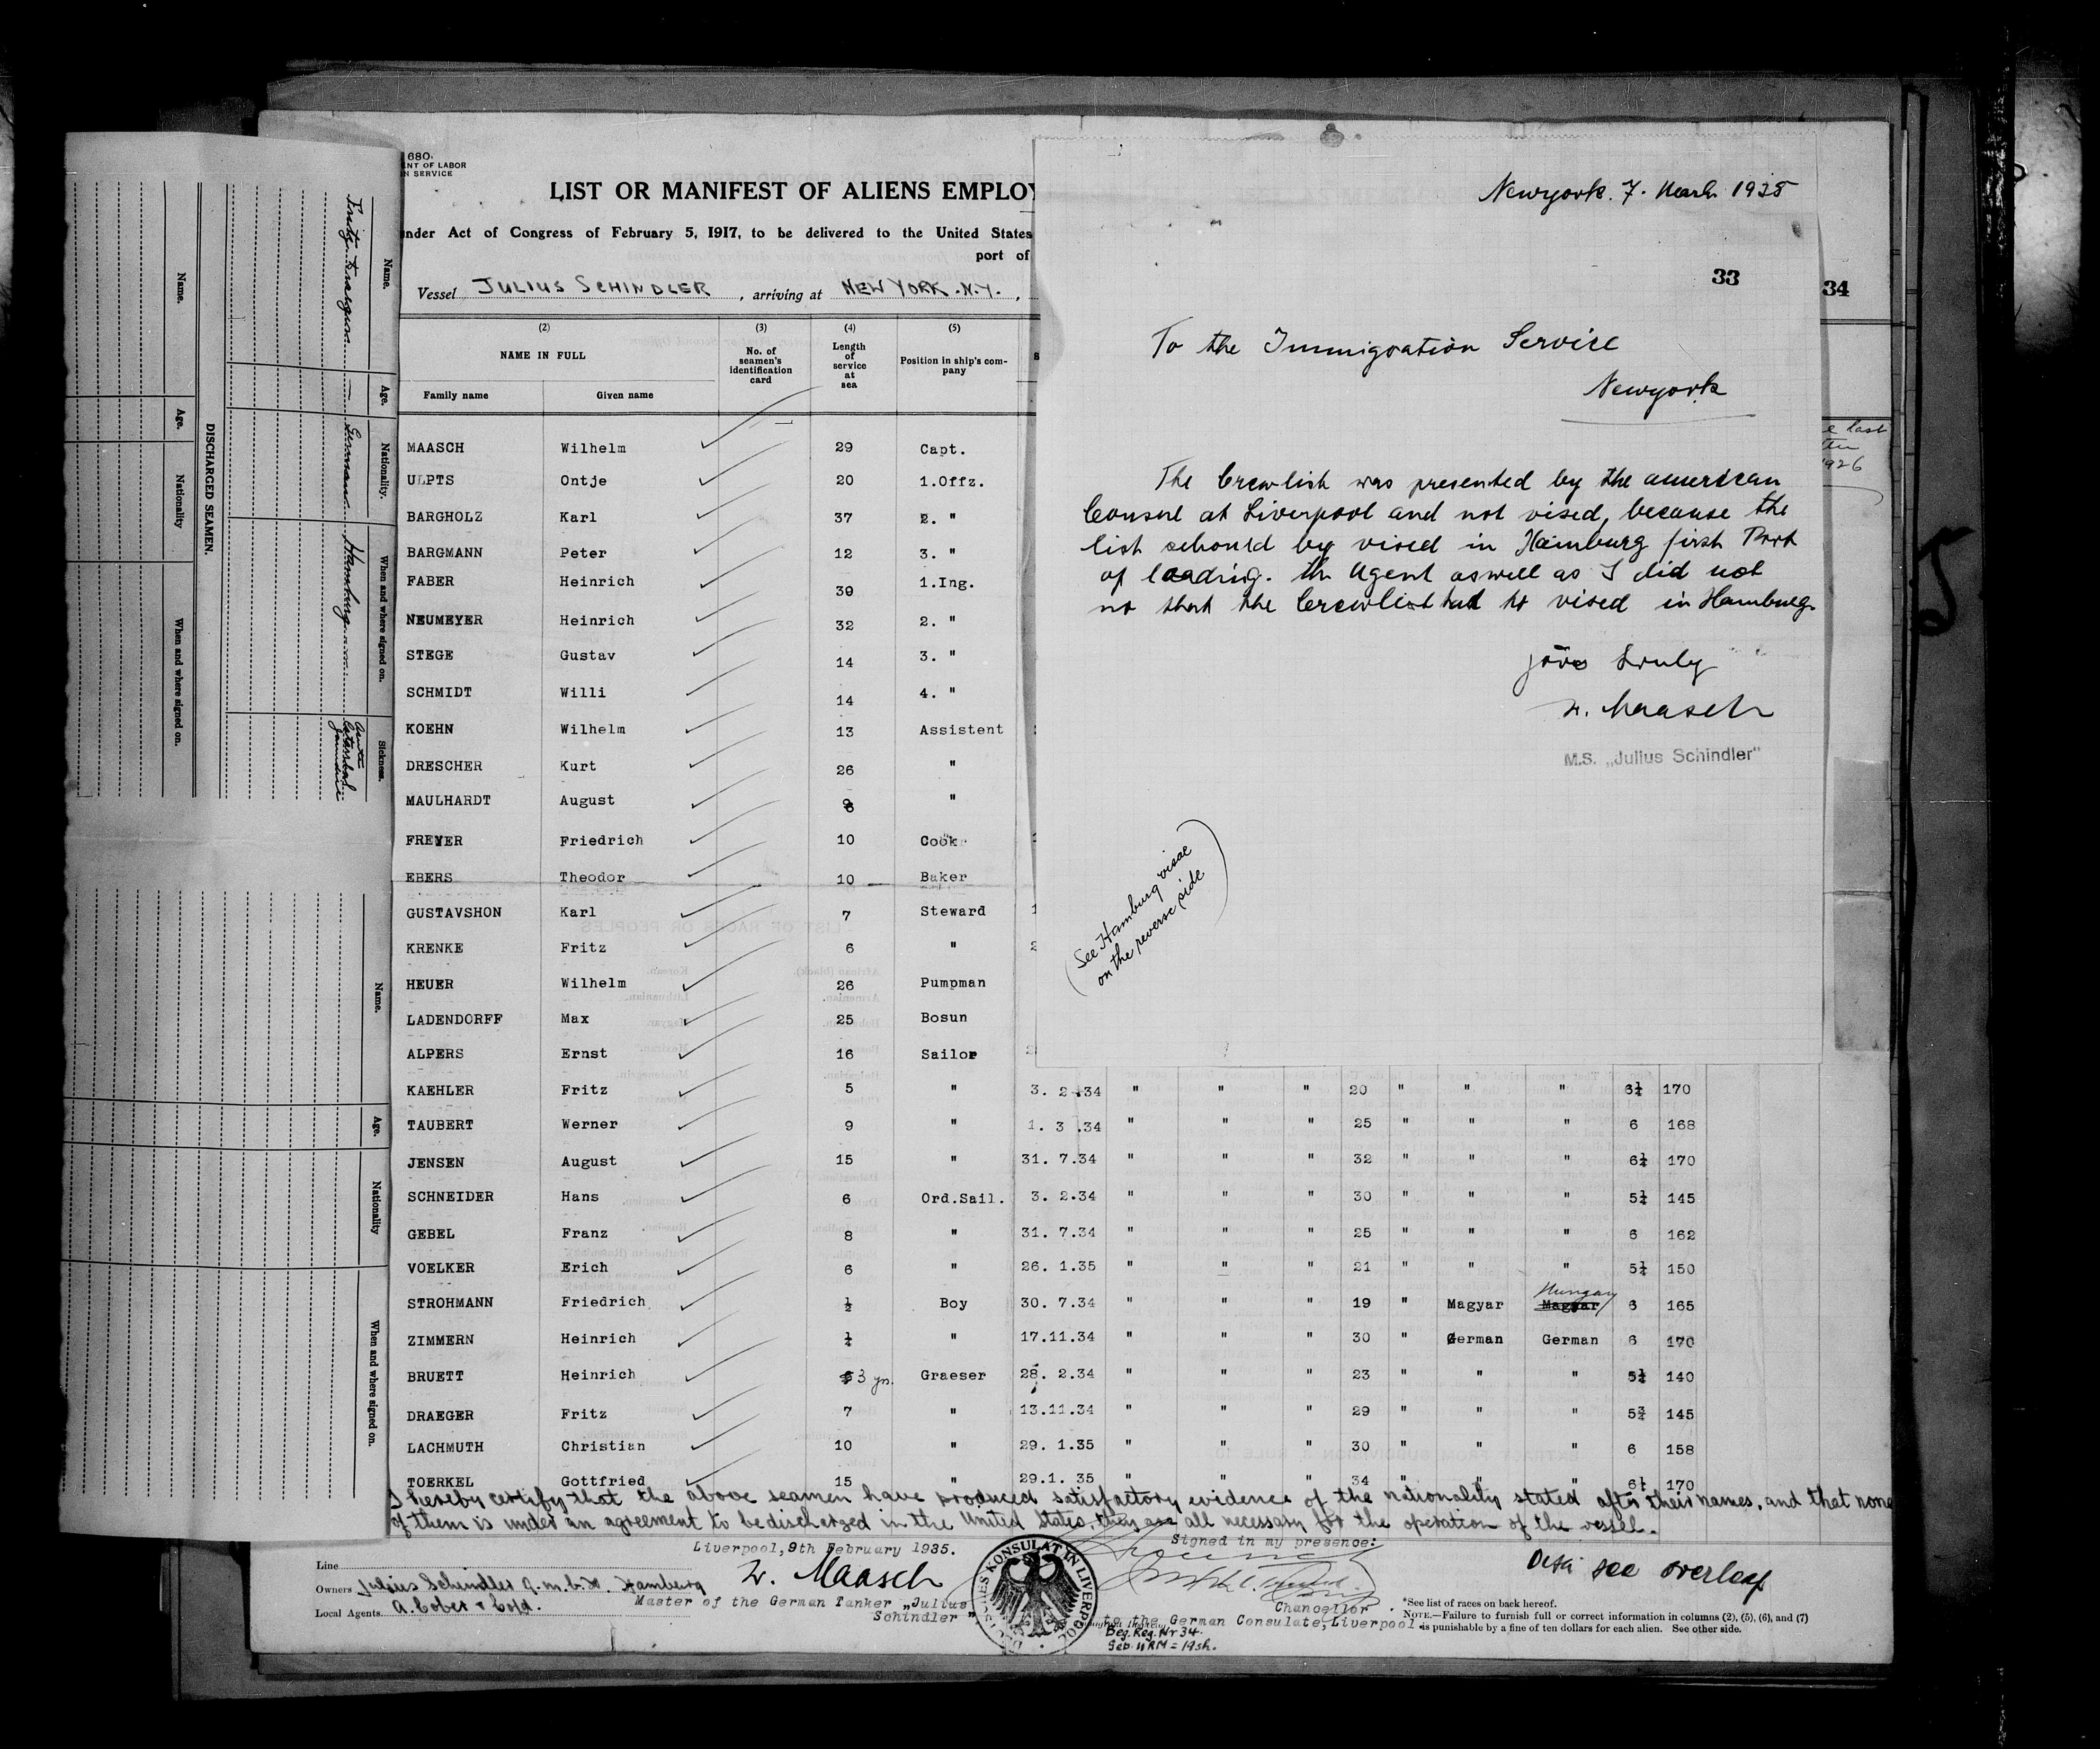 680
ENT OF LABOR
N SERVICE
LIST OR MANIFEST OF ALIENS EMPLOY
nder Act of Congress of February 5, 1917, to be delivered to the United States
port of
Vessel JULIUS SCHINDLER, arriving at NEW YORK.N.Y.,
(2) (3) (4) (5)
NAME IN FULL
No. of seamen's identification card
Length of service at sea
Position in ship's company
Family name Given name
MAASCH Wilhelm 29 Capt.
ULPTS Ontje 20 1.Offz.
BARGHOLZ Karl 37 2. "
BARGMANN Peter 12 3. "
FABER Heinrich 30 1.Ing.
NEUMEYER Heinrich 32 2. "
STEGE Gustav 14 3. "
SCHMIDT Willi 14 4. "
KOEHN Wilhelm 13 Assistent
DRESCHER Kurt 26 "
MAULHARDT August "
FREYER Friedrich 10 Cook
EBERS Theodor 10 Baker
GUSTAVSHON Karl 7 Steward
KRENKE Fritz 6 "
HEUER Wilhelm 26 Pumpman
LADENDORFF Max 25 Bosun
ALPERS Ernst 16 Sailor
KAEHLER Fritz 5 " 3. 2.34 " " " 20 " " " 6¼ 170
TAUBERT Werner 9 " 1. 3 .34 " " " 25 " " " 6 168
JENSEN August 15 " 31. 7.34 " " " 32 " " " 6¼ 170
SCHNEIDER Hans 6 Ord.Sail. 3. 2.34 " " " 30 " " " 5¼ 145
GEBEL Franz 8 " 31. 7.34 " " " 25 " " " 6 162
VOELKER Erich 6 " 26. 1.35 " " " 21 " " " 5¼ 150
Hungary
STROHMANN Friedrich ½ Boy 30. 7.34 " " " 19 " Magyar Magyar 6 165
ZIMMERN Heinrich ¼ " 17.11.34 " " " 30 " German German 6 170
BRUETT Heinrich 3 yrs. Graeser 28. 2.34 " " " 23 " " " 5¼ 140
DRAEGER Fritz 7 " 13.11.34 " " " 29 " " " 5¾ 145
LACHMUTH Christian 10 " 29. 1.35 " " " 30 " " " 6 158
TOERKEL Gottfried 15 " 29.1. 35 " " " 34 " " " 6¼ 170
I hereby certify that the above seamen have produced satisfactory evidence of the nationality stated after their names, and that none
of them is under an agreement to be discharged in the United States, they are all necessary for the operation of the vessel.
Liverpool,9th February 1935.
Signed in my presence:
W. Maasch
Master of the German Tanker „Julius
Schindler "
Chancellor
to the German Consulate,Liverpool.
Beg. Reg. Nr 34.
Geb. 11 RM = 19sh.
DEUTSCHES KONSULAT IN LIVERPOOL
Line
Owners Julius Schindler G.m.b.H. Hamburg
Local Agents
see overleaf
*See list of races on back hereof.
NOTE.—Failure to furnish full or correct information in columns (2), (5), (6), and (7)
is punishable by a fine of ten dollars for each alien. See other side.
Newyork. 7. March 1935
33
34
To the Immigration Service
Newyork
The Crewlist was presented by the american
Consul at Liverpool and not vised, because the
list schould by vised in Hamburg first Port
of loading. the Agent aswell as I did not
no that the Crewlist had to vised in Hamburg.
yours truly
W. Maasch
M.S. „Julius Schindler"
(See Hamburg visae
on the reverse side)
e last
1926
5
Name. Age. Nationality. When and where signed on. Sickness.
Fritz German Hamburg
DISCHARGED SEAMEN.
Name. Age. Nationality When and where signed on.
Name. Age. Nationality When and where signed on.
LIST OF RACES OR PEOPLES